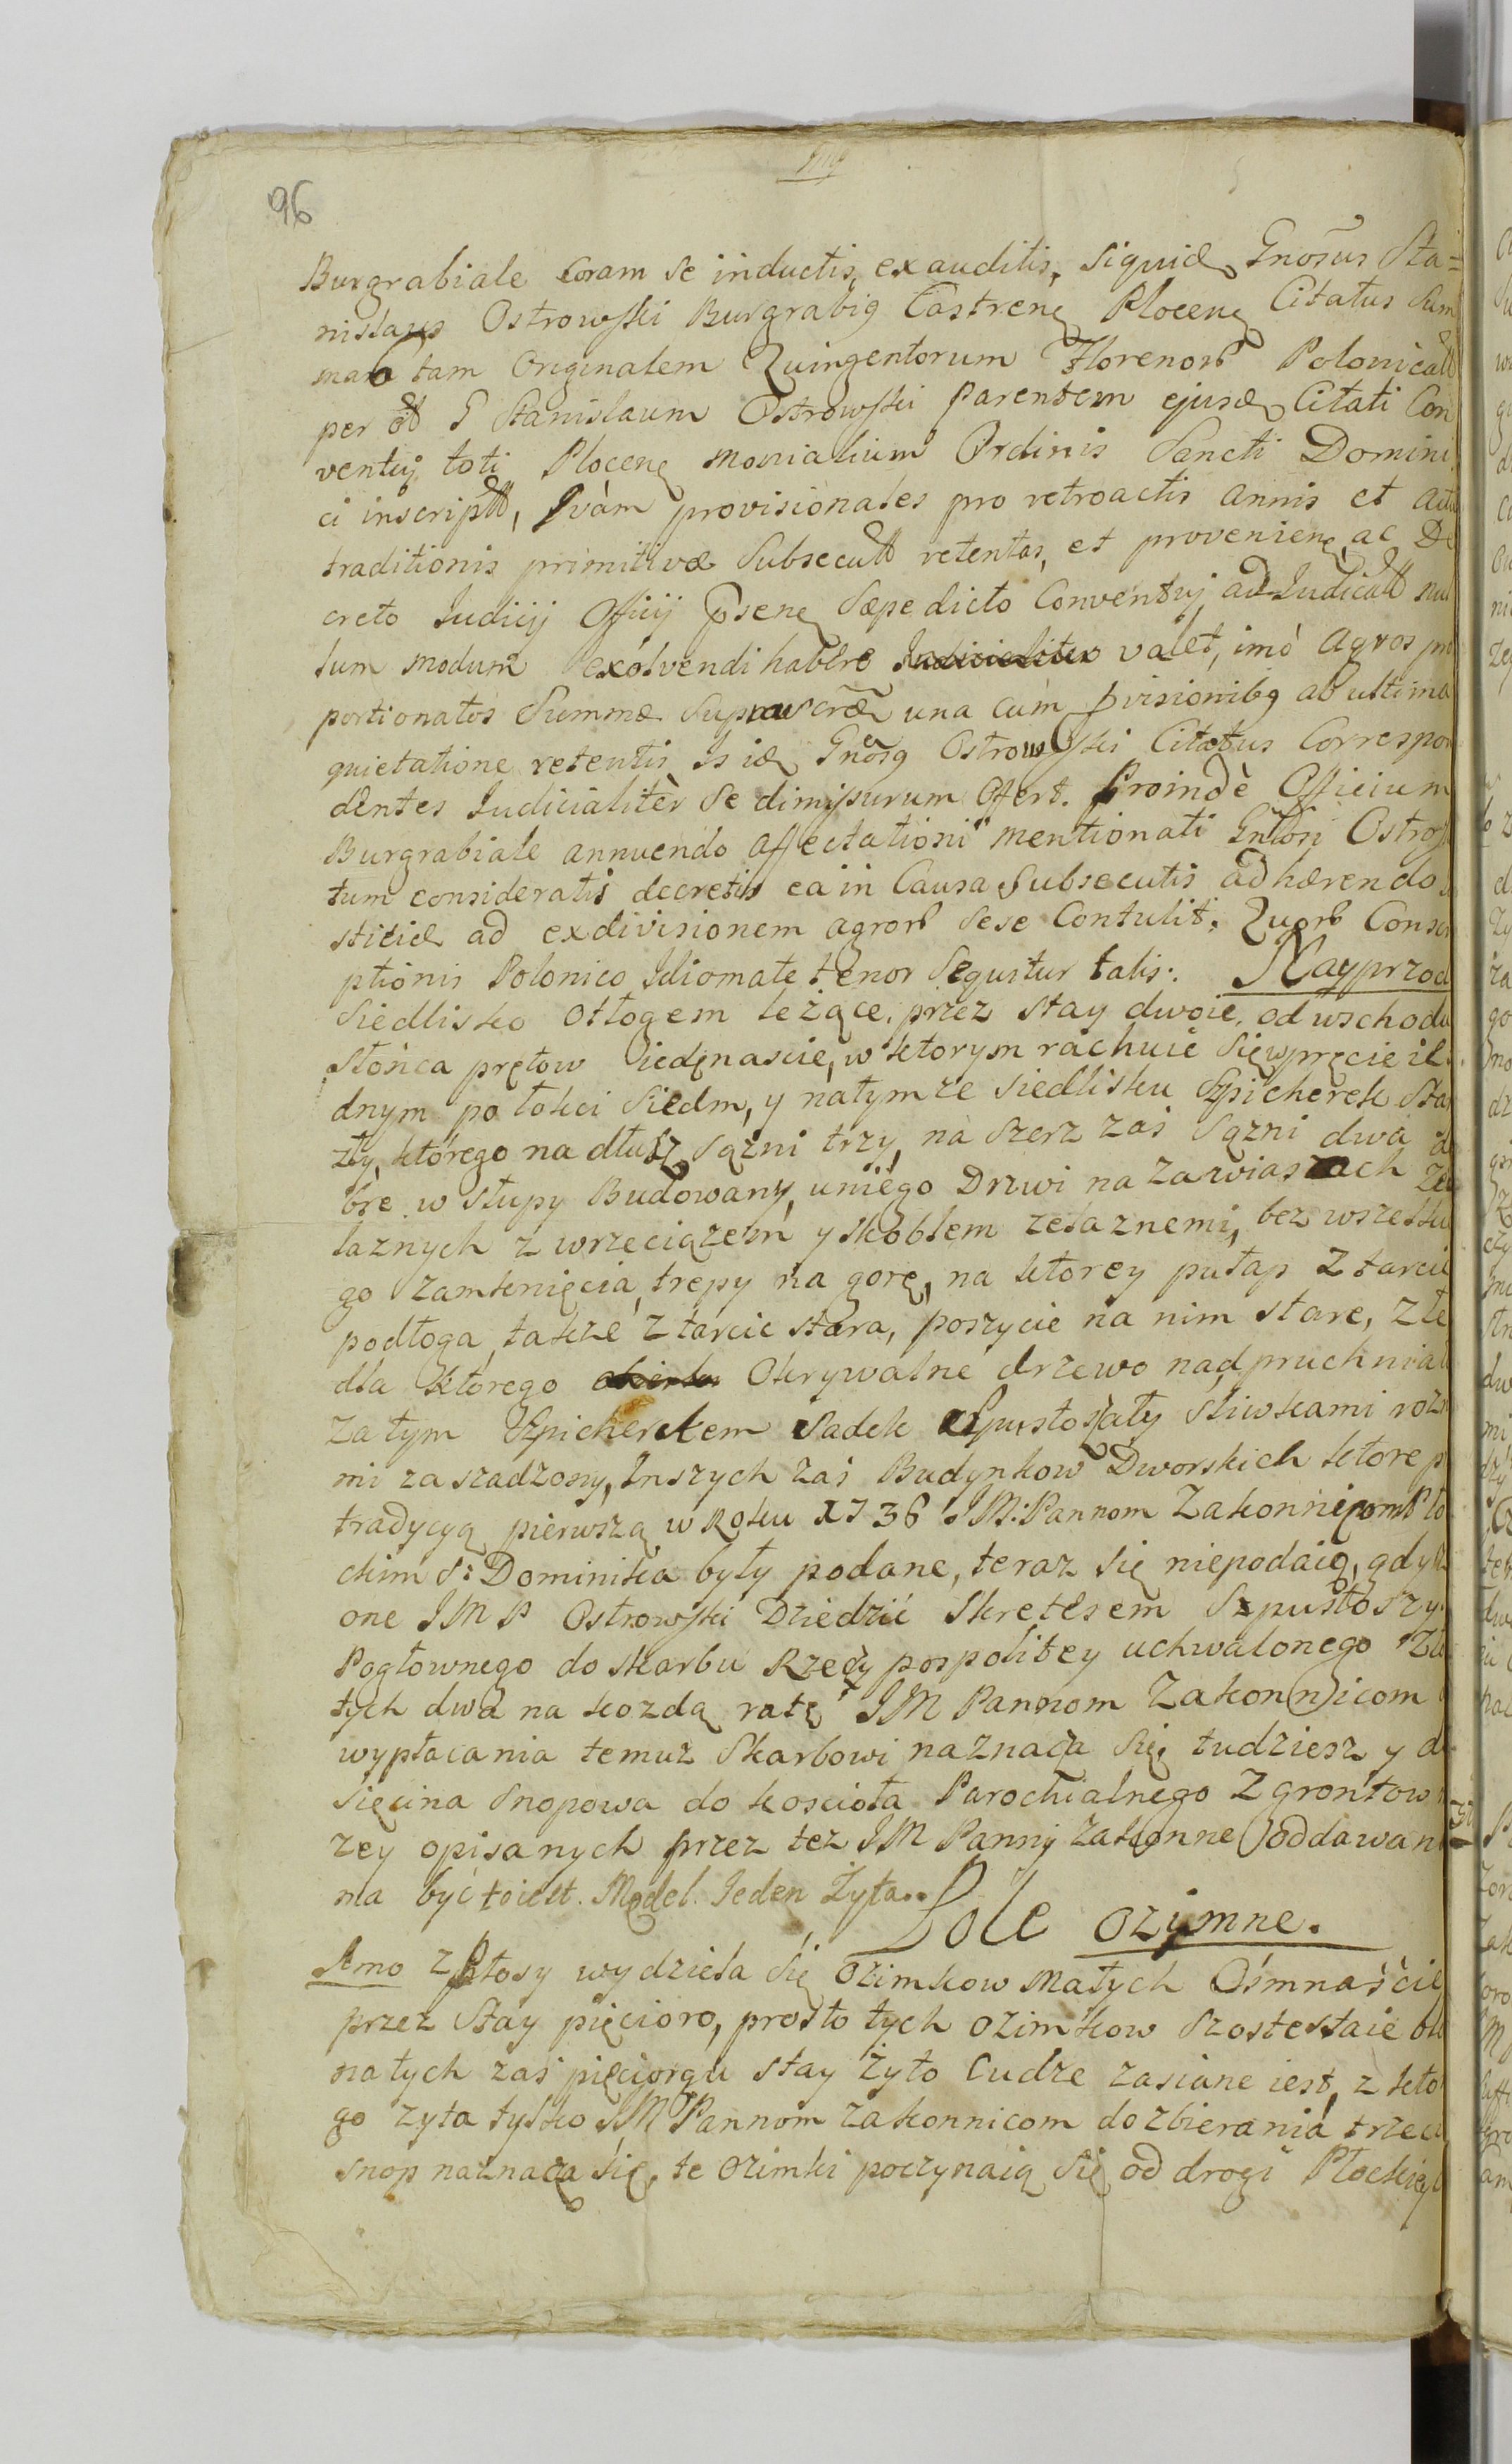 96
Burgrabiale Coram Se inductis, exauditis, Siquid Gnosus Sta=
nislaus Ostrowski Burgrabig Castreng Ploceng Citatus Sum
mam tam Originalem Quingentorum Florenor Polonical
per G Stanislaum Ostrowski Parentem ejusd Citati Con
ventuj toti Ploceng Monialium Ordinis Sancti Domini
ci inscript, Quàm provisionales pro retroactis annis et actu
traditionis primitivæ Subsecutt retentas, et provenieng ac De
creto Iudicij Officij Pseng Sæpe dicto Conventuj adIudicatt nul
lum modum exolvendi habere valet, imò Agros pro
portionatos Summæ Suprascræ una cum pvisionibg ab ultima
quietatione retentis Is id Gnosg Ostrowski Citatus Correspon
dentes Iudicialitèr Se dimissurum Offert. Proindè Officium
Burgrabiale annuendo affectationi mentionati Gnosi Ostrows
tum consideratis decretis ea in Causa Subsecutis adhærendo
sticid ad exdivisionem agror Sese Contulit. Quor Conscri
ptionis Polonico Idiomate tenor Sequitur talis: Nayprzod
Siedlisko Odłogem leżące, przez stay dwoie, od wschodu
Słońca prętow iedęnascie, w ktorym rachuie się w pręcie ie
dnym po łokci Siedm, y na tymże siedlisku Szpicherek Sta
ry, którego na dłusz Sążni trzy, na szerz zaś Sążni dwa
w słupy Budowany, u niego Drzwi na zawiasach Że
laznych z wrzeciążem y skoblem żelaznemi, bez wszelkie
go zamknięcia, trepy na gorę, na ktorey pułap z tarcic
podłoga także z tarcic stara, poszycie na nim stare, złe
dla ktorego Okrywalne drzewo nadpruchniał
Za tym Szpicherkem Sadek Spustoszały śliwkami rozn
mi zaszadzony, Inszych zaś Budynkow Dworskich ktore p
tradycyą pierwszą w Roku 1736 JM: Pannom Zakonnicom Pło
ckim S: Dominika były podane, teraz się niepodaią, gdysz
one JMP Ostrowski Dziedzic Skretesem Szpustoszy
Pogłownego do skarbu Rzeczy pospolitey uchwalonego Zło
tych dwa na kozdą ratę JM Pannom Zakonnicom
wypłacania temuz Skarbowi naznacza się, tudziesz y d
sięcina Snopowa do kościoła Parochialnego z grontow
zey opisanych przez tez JM Panny Zakonne oddawan
ma być toiest. Mędel. Ieden Żyta..
Pole Ozimne.
Amo z Płosy wydziela się Ozimkow Małych Ośmnaście
przez Stay pięcioro, prosto tych ozimkow Szoste staie
na tych zaś pięciorgu stay żyto Cudze zasiane iest, z kto
go zyta tylko JM Pannom Zakonnicom do zbierania trzeci
snop naznacza się, te Ozimki poczynaią się od drogi Płockiey